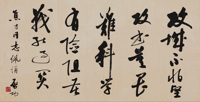 攻城不怕坚
攻书莫畏
难科学
有险阻苦
战能过关
启功